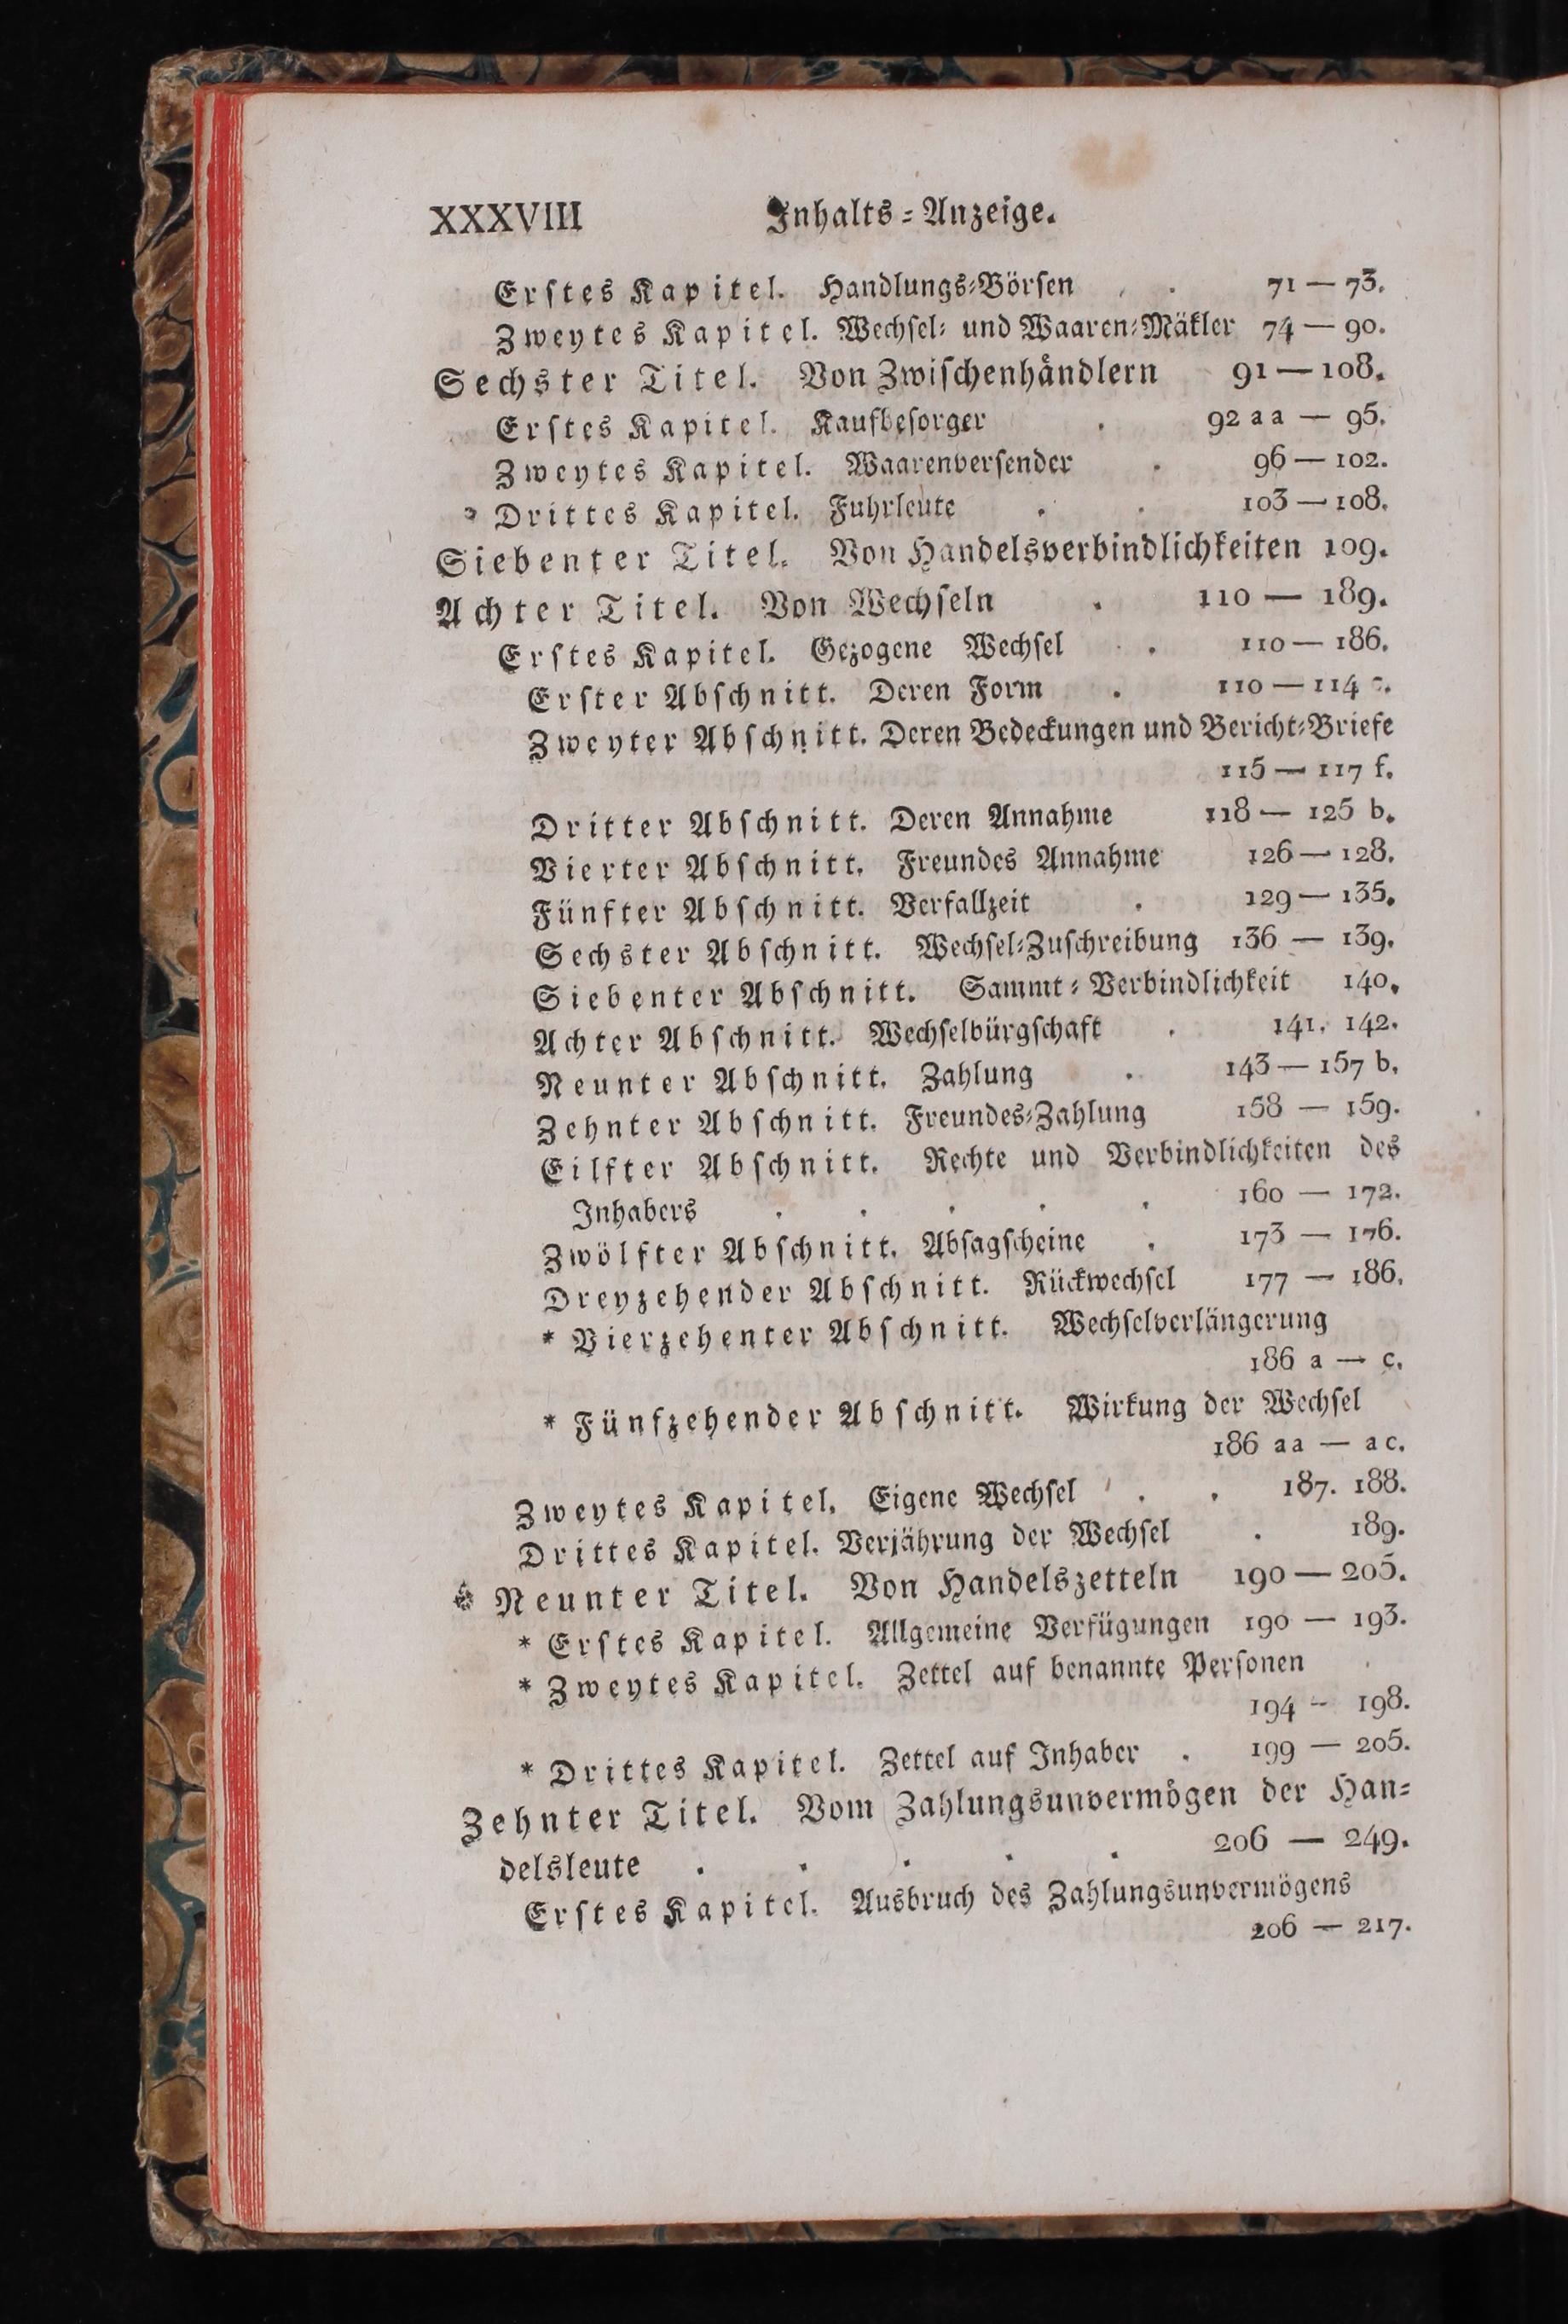 XXXVIII Inhalts-Anzeige.
Erstes Kapitel. Handlungs-Börsen . . 71 — 73.
Zweytes Kapitel. Wechsel- und Waaren-Mäkler 74 — 90.
Sechster Titel. Von Zwischenhändlern 91 — 108.
Erstes Kapitel. Kaufbesorger . 92 aa — 95.
Zweytes Kapitel. Waarenversender . 96 — 102.
Drittes Kapitel. Fuhrleute . . 103 — 108.
Siebenter Titel. Von Handelsverbindlichkeiten 109.
Achter Titel. Von Wechseln . 110 — 189.
Erstes Kapitel. Gezogene Wechsel . . 110 — 186.
Erster Abschnitt. Deren Form . 110 — 114 c.
Zweyter Abschnitt. Deren Bedeckungen und Bericht-Briefe
115 — 117 f.
Dritter Abschnitt. Deren Annahme 118 — 125 b.
Vierter Abschnitt. Freundes Annahme 126 — 128.
Fünfter Abschnitt. Verfallzeit . 129 — 135.
Sechster Abschnitt. Wechsel-Zuschreibung 136 — 139.
Siebenter Abschnitt. Sammt-Verbindlichkeit 140.
Achter Abschnitt. Wechselbürgschaft . 141. 142.
Neunter Abschnitt. Zahlung . 143 — 157 b.
Zehnter Abschnitt. Freundes-Zahlung 158 — 159.
Eilfter Abschnitt. Rechte und Verbindlichkeiten des
Inhabers . . . . . 160 — 172.
Zwölfter Abschnitt. Absagscheine . 173 — 176.
Dreyzehender Abschnitt. Rückwechsel 177 — 186.
* Vierzehenter Abschnitt. Wechselverlängerung
186 a — c.
* Fünfzehender Abschnitt. Wirkung der Wechsel
186 aa — ac.
Zweytes Kapitel. Eigene Wechsel . . 187. 188.
Drittes Kapitel. Verjährung der Wechsel . 189.
* Neunter Titel. Von Handelszetteln 190 — 205.
* Erstes Kapitel. Allgemeine Verfügungen 190 — 193.
* Zweytes Kapitel. Zettel auf benannte Personen
194 — 198.
* Drittes Kapitel. Zettel auf Inhaber . 199 — 205.
Zehnter Titel. Vom Zahlungsunvermögen der Han-
delsleute . . . . . 206 — 249.
Erstes Kapitel. Ausbruch des Zahlungsunvermögens
206 — 217.